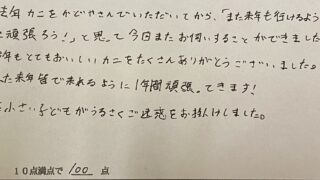 去年カニをかどやさんでいただいてから、「また来年も行けるよう
に頑張ろう!」と思って今日またお伺いすることができました
今年もとてもおいしいカニをたくさんありがとうございました。
また来年皆で来れるように1年間頑張ってきます!
小さい子どもがうるさくご迷惑をお掛けしました。
10点満点で 100 点